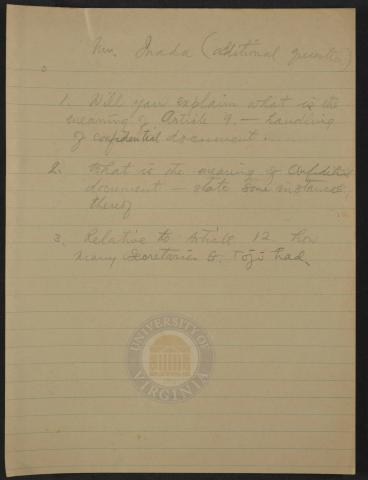 Mr. Inada (additional question)
1. Will you explain what is the
meaning of Article 9. — handling
of confidential document.
2. What is the meaning of Confidential
document — state some instances
thereof
3. Relative to Article 12 how
many Secretaries G. Tojo had
UNIVERSITY OF
VIRGINIA